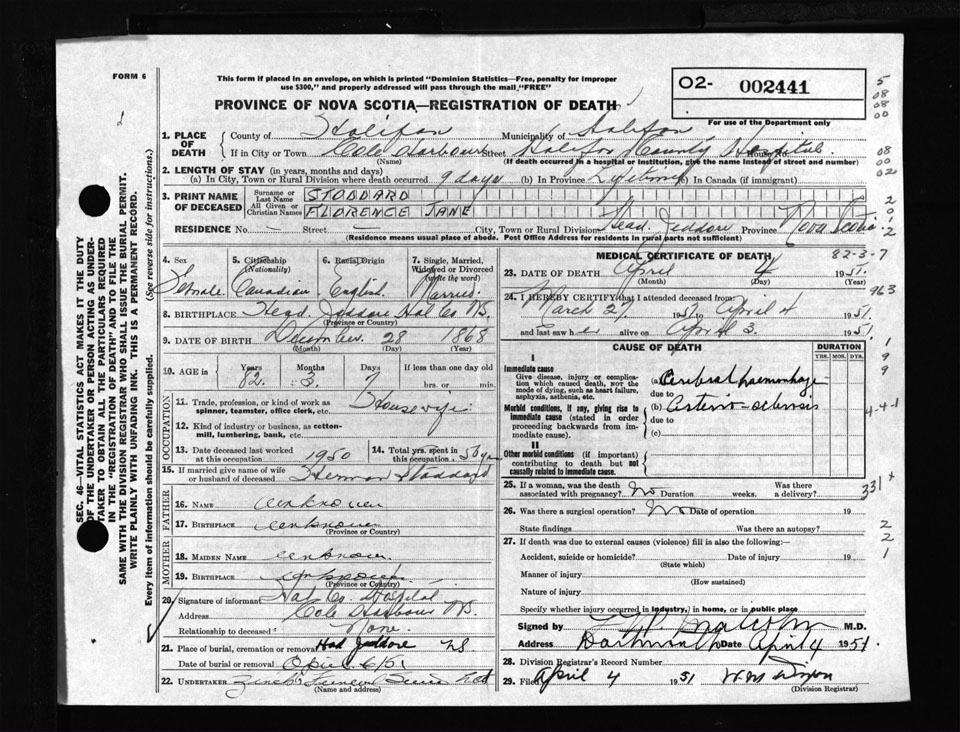 FORM 6
This form if placed in an envelope, on which is printed "Dominion Statistics—Free, penalty for improper
use $300," and properly addressed will pass through the mail "FREE"
PROVINCE OF NOVA SCOTIA—REGISTRATION OF DEATH
O2- 002441
For use of the Department only
5
08
08
00
08
00
02
2
0
1
2
1. PLACE OF DEATH County of Halifax Municipality of Halifax
If in City or Town Cole Harbour Street Halifax County Hospital House No.
(Name) (If death occurred in a hospital or institution, give the name instead of street and number)
2. LENGTH OF STAY (in years, months and days)
(a) In City, Town or Rural Division where death occurred 9 days (b) In Province Lifetime (c) In Canada (if immigrant)
3. PRINT NAME OF DECEASED Surname or Last Name STODDARD
All Given or Christian Names FLORENCE JANE
RESIDENCE No. — Street — City, Town or Rural Division Head Jeddore Province Nova Scotia
(Residence means usual place of abode. Post Office Address for residents in rural parts not sufficient)
4. Sex Female
5. Citizenship (Nationality) Canadian
6. Racial Origin English
7. Single, Married, Widowed or Divorced (write the word) Married
8. BIRTHPLACE Head Jeddore Hal Co NS.
(Province or Country)
9. DATE OF BIRTH December 28 1868
(Month) (Day) (Year)
10. AGE in Years 82 Months 3 Days 7 If less than one day old hrs. or min.
OCCUPATION
11. Trade, profession, or kind of work as spinner, teamster, office clerk, etc. Housewife
12. Kind of industry or business, as cotton-mill, lumbering, bank, etc.
13. Date deceased last worked at this occupation 1950
14. Total yrs. spent in this occupation 50 yrs
15. If married give name of wife or husband of deceased Herman Stoddard
FATHER
16. NAME unknown
17. BIRTHPLACE unknown
(Province or Country)
MOTHER
18. MAIDEN NAME unknown
19. BIRTHPLACE unknown
(Province or Country)
20. Signature of informant Hal Co. Hospital
Address Cole Harbour NS.
Relationship to deceased None
21. Place of burial, cremation or removal Head Jeddore NS
Date of burial or removal April 6/51
22. UNDERTAKER Funeral
(Name and address)
MEDICAL CERTIFICATE OF DEATH 82-3-7
23. DATE OF DEATH April 4 1951.
(Month) (Day) (Year)
24. I HEREBY CERTIFY that I attended deceased from 963
March 27 1951 to April 4 1951
and last saw her alive on April 3. 1951
CAUSE OF DEATH DURATION
YRS. MOS. DYS.
1
9
9
I
Immediate cause
Give disease, injury or complication which caused death, NOT the mode of dying, such as heart failure, asphyxia, asthenia, etc.
(a) Cerebral haemorrhage
due to
Morbid conditions, if any, giving rise to immediate cause (stated in order proceeding backwards from immediate cause).
(b) Arterio-sclerosis
due to
(c)
4-4-1
II
Other morbid conditions (if important) contributing to death but not causally related to immediate cause.
25. If a woman, was the death associated with pregnancy? No Duration weeks. Was there a delivery?
331 x
26. Was there a surgical operation? No Date of operation 19
State findings Was there an autopsy?
2
2
1
27. If death was due to external causes (violence) fill in also the following:
Accident, suicide or homicide? Date of injury 19
(State which)
Manner of injury
(How sustained)
Nature of injury
Specify whether injury occurred in industry, in home, or in public place
Signed by Malcolm M.D.
Address Dartmouth Date April 4 1951
28. Division Registrar's Record Number
29. Filed April 4 1951
(Division Registrar)
SEC. 46—VITAL STATISTICS ACT MAKES IT THE DUTY
OF THE UNDERTAKER OR PERSON ACTING AS UNDER-
TAKER TO OBTAIN ALL THE PARTICULARS REQUIRED
IN THE "REGISTRATION OF DEATH" AND TO FILE THE
SAME WITH THE DIVISION REGISTRAR WHO SHALL ISSUE THE BURIAL PERMIT.
WRITE PLAINLY WITH UNFADING INK. THIS IS A PERMANENT RECORD.
Every item of information should be carefully supplied. (See reverse side for instructions.)